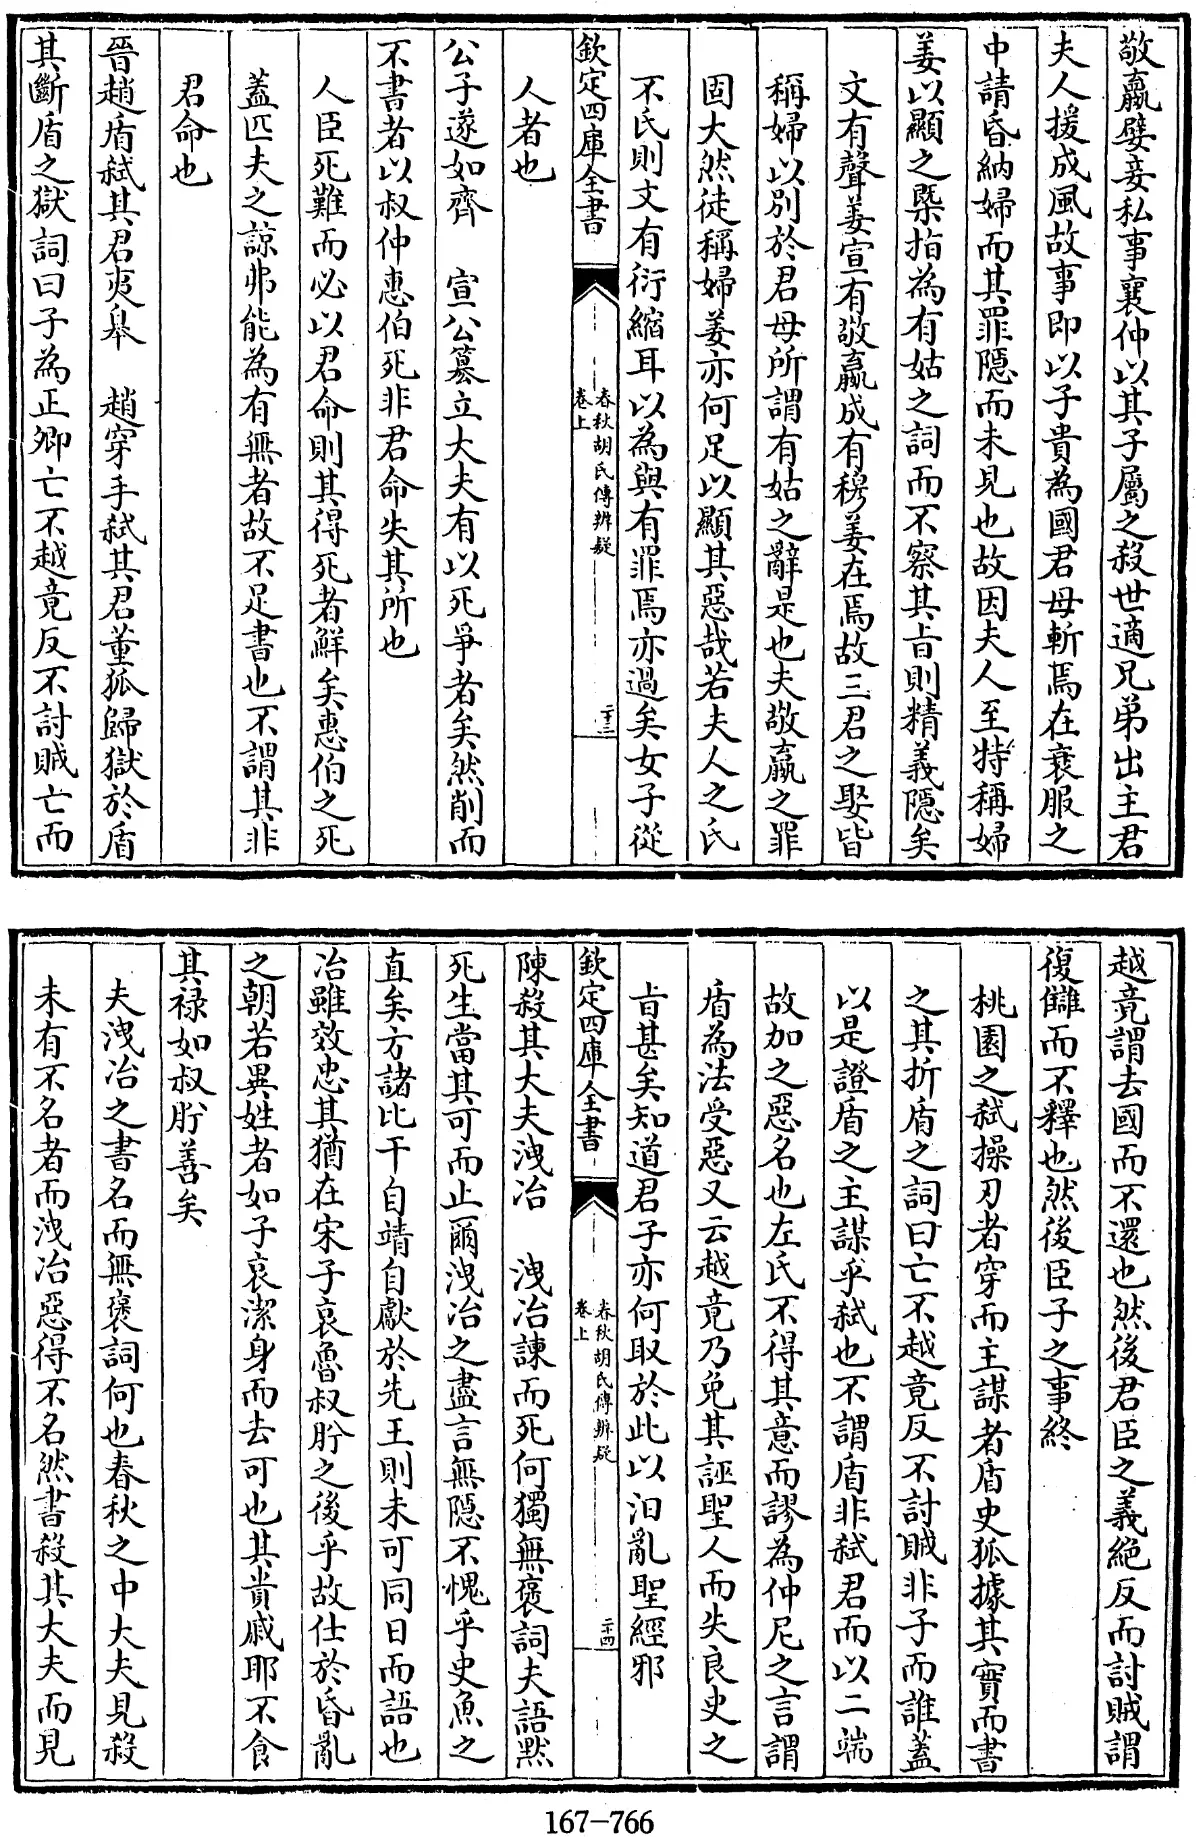 敬嬴嬖妾私事襄仲以其子屬之殺世適兄弟出主君
夫人援成風故事即以子貴為國君母斬焉在衰服之
中請昏納婦而其罪隱而未見也故因夫人至特稱婦
姜以顯之槩指為有姑之詞而不察其旨則精義隱矣
文有聲姜宣有敬嬴成有穆姜在焉故三君之娶皆
稱婦以別於君母所謂有姑之辭是也夫敬嬴之罪
固大然徒稱婦姜亦何足以顯其惡哉若夫人之氏
不氏則文有衍縮耳以為與有罪焉亦過矣女子從
欽定四庫全書
春秋胡氏傳辨疑
卷上
二十三
人者也
公子遂如齊　宣公簒立大夫有以死爭者矣然削而
不書者以叔仲惠伯死非君命失其所也
人臣死難而必以君命則其得死者鮮矣惠伯之死
蓋匹夫之諒弗能為有無者故不足書也不謂其非
君命也
晉趙盾弑其君夷皋　趙穿手弑其君董狐歸獄於盾
其斷盾之獄詞曰子為正卿亡不越竟反不討賊亡而
越竟謂去國而不還也然後君臣之義絶反而討賊謂
復讎而不釋也然後臣子之事終
桃園之弑操刃者穿而主謀者盾史狐據其實而書
之其折盾之詞曰亡不越竟反不討賊非子而誰蓋
以是證盾之主謀乎弑也不謂盾非弑君而以二端
故加之惡名也左氏不得其意而謬為仲尼之言謂
盾為法受惡又云越竟乃免其誣聖人而失良史之
旨甚矣知道君子亦何取於此以汨亂聖經邪
欽定四庫全書
春秋胡氏傳辨疑
卷上
二十四
陳殺其大夫洩冶　洩冶諫而死何獨無褒詞夫語黙
死生當其可而止爾洩冶之盡言無隱不愧乎史魚之
直矣方諸比干自靖自獻於先王則未可同日而語也
冶雖效忠其猶在宋子哀魯叔肸之後乎故仕於昏亂
之朝若異姓者如子哀潔身而去可也其貴戚耶不食
其禄如叔肸善矣
夫洩冶之書名而無褒詞何也春秋之中大夫見殺
未有不名者而洩冶惡得不名然書殺其大夫而見
167-766